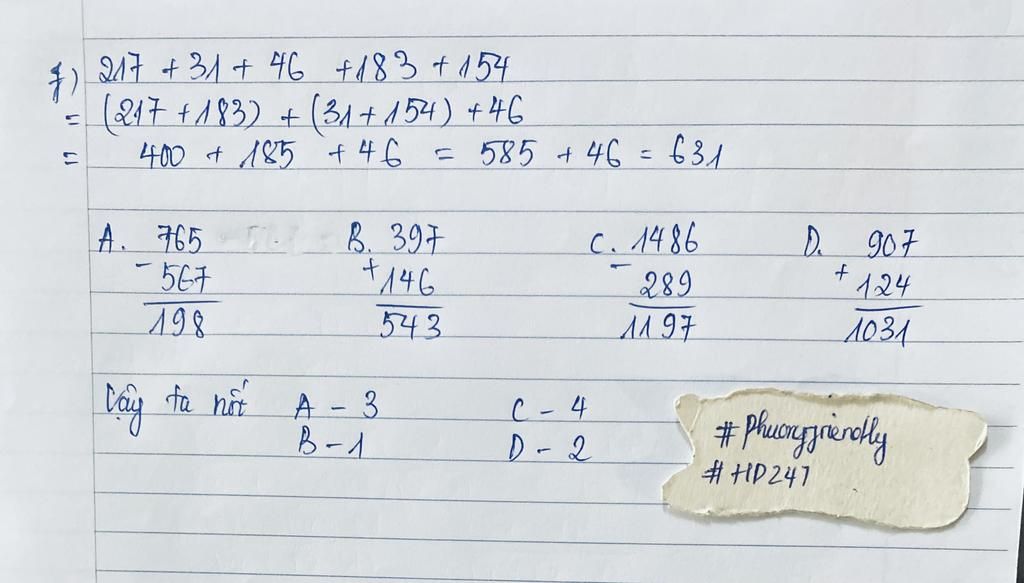 f) 217 + 31 + 46 + 183 + 154
= (217 + 183) + (31 + 154) + 46
= 400 + 185 + 46 = 585 + 46 = 631
A. 765 B. 397 C. 1486 D. 907
- 567 + 146 - 289 + 124
198 543 1197 1031
Vậy ta nối A - 3 C - 4
B - 1 D - 2
#Phuongfriendly
#HD247